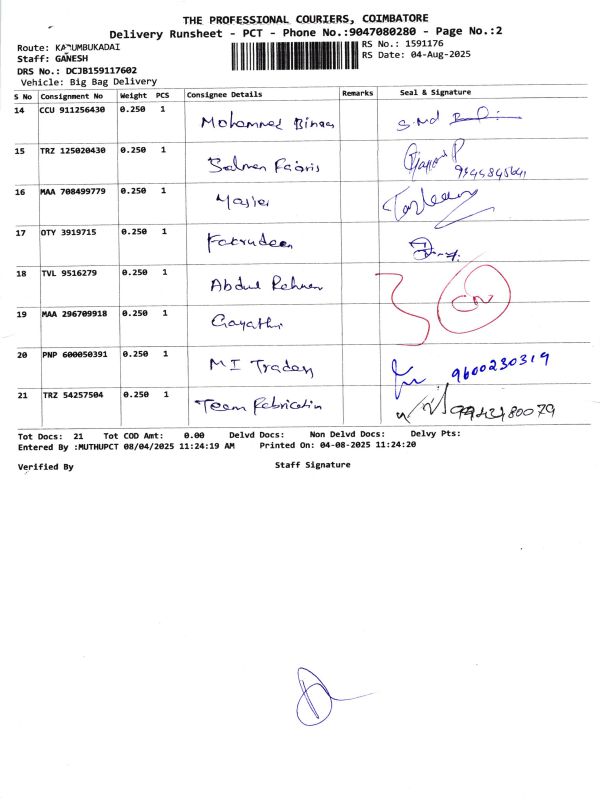 THE PROFESSIONAL COURIERS, COIMBATORE
Delivery Runsheet - PCT - Phone No.:9047080280 - Page No.:2
Route: KARUMBUKADAI
RS No.: 1591176
Staff: GANESH
RS Date: 04-Aug-2025
DRS No.: DCJB159117602
Vehicle: Big Bag Delivery
S No Consignment No Weight PCS Consignee Details Remarks Seal & Signature
14 CCU 911256430 0.250 1 Mohammed
15 TRZ 125020430 0.250 1 Salman
16 MAA 708499779 0.250 1
17 OTY 3919715 0.250 1 Fakrudeen
18 TVL 9516279 0.250 1 Abdul Rahman CN
19 MAA 296709918 0.250 1 Gayathri
20 PNP 600050391 0.250 1 M I Traders 9600230319
21 TRZ 54257504 0.250 1 Team Fabrication
Tot Docs: 21 Tot COD Amt: 0.00 Delvd Docs: Non Delvd Docs: Delvy Pts:
Entered By :MUTHUPCT 08/04/2025 11:24:19 AM Printed On: 04-08-2025 11:24:20
Verified By Staff Signature